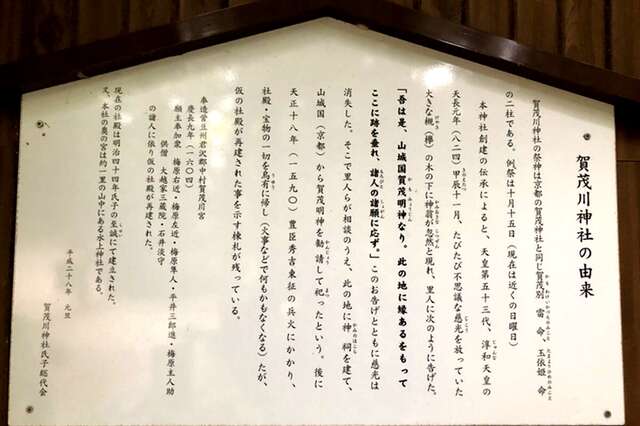 賀茂川神社の由来
賀茂川神社の祭神は京都の賀茂神社と同じ賀茂別雷命、玉依姫命
の二社である。例祭は十月十五日（現在は近くの日曜日）
本神社創建の伝承によると、天皇第五十三代、淳和天皇の
天長元年（八二四）甲辰十一月、たびたび不思議な慈光を放っていた
大きな槻（欅）の木の下に神翁が忽然と現れ、里人に次のように告げた。
「吾は是、山城国賀茂明神なり。此の地に縁あるをもって
ここに跡を垂れ、諸人の諸願に応ず。」このお告げとともに慈光は
消失した。そこで里人らが相談のうえ、此の地に神祠を建て、
山城国（京都）から賀茂明神を勧請して祀ったという。後に
天正十八年（一五九〇）豊臣秀吉東征の兵火にかかり、
社殿・宝物の一切を烏有に帰し（火事などで何もかもなくなる）たが、
仮の社殿が再建された事を示す棟札が残っている。
奉造営豆州君沢郡中村賀茂川宮
慶長九年（一六〇四）
願主参加衆　梅原右近・梅原左近・梅原隼人・平井三郎進・梅原主人助
供僧　大越家三蔵院・石井淡守
の諸人に依り仮の社殿が再建された。
現在の社殿は明治四十四年氏子の至誠にて建立された。
又、本社の奥の宮は約一里の山中にある水上神社である。
平成二十八年　元旦
賀茂川神社氏子総代会